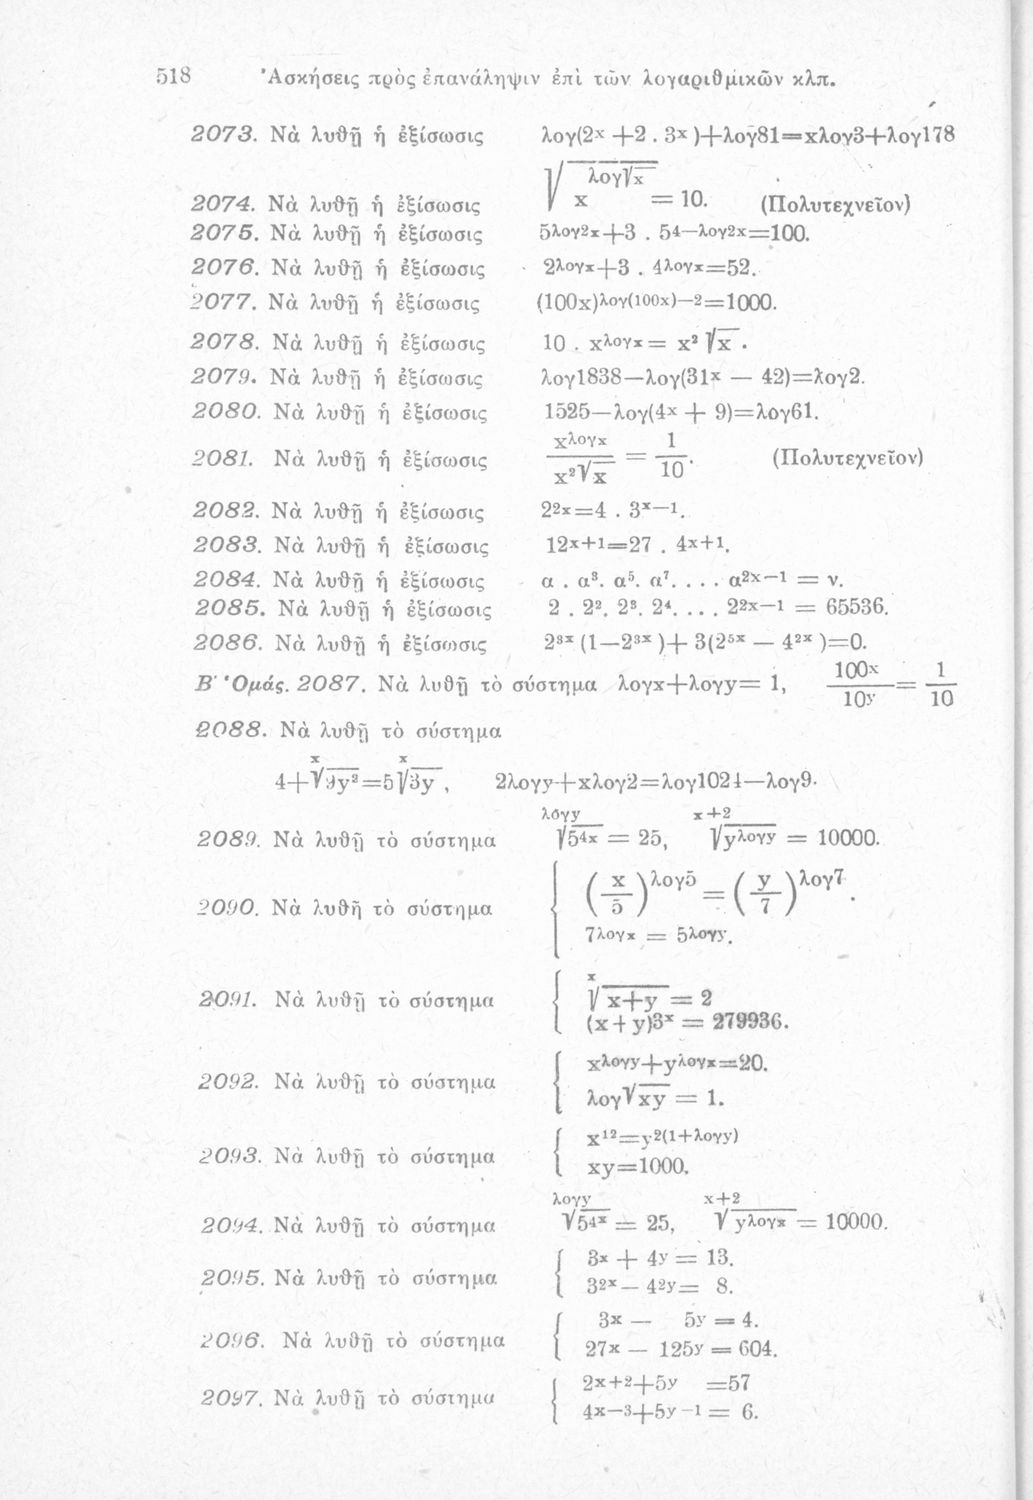 518 Ἀσκήσεις πρὸς ἐπανάληψιν ἐπὶ τῶν λογαριθμικῶν κλπ.
2073. Νὰ λυθῇ ἡ ἐξίσωσις λογ(2ˣ +2 . 3ˣ )+λογ81=xλογ3+λογ178
2074. Νὰ λυθῇ ἡ ἐξίσωσις √x^(λογ√x) = 10. (Πολυτεχνεῖον)
2075. Νὰ λυθῇ ἡ ἐξίσωσις 5^(λογ2x)+3 . 5^(4—λογ2x)=100.
2076. Νὰ λυθῇ ἡ ἐξίσωσις 2^(λογx)+3 . 4^(λογx)=52.
2077. Νὰ λυθῇ ἡ ἐξίσωσις (100x)^(λογ(100x)—2)=1000.
2078. Νὰ λυθῇ ἡ ἐξίσωσις 10 . x^(λογx) = x² √x .
2079. Νὰ λυθῇ ἡ ἐξίσωσις λογ1838—λογ(31ˣ — 42)=λογ2.
2080. Νὰ λυθῇ ἡ ἐξίσωσις 1525—λογ(4ˣ + 9)=λογ61.
2081. Νὰ λυθῇ ἡ ἐξίσωσις x^(λογx) / x²√x = 1/10. (Πολυτεχνεῖον)
2082. Νὰ λυθῇ ἡ ἐξίσωσις 2^(2x)=4 . 3^(x—1).
2083. Νὰ λυθῇ ἡ ἐξίσωσις 12^(x+1)=27 . 4^(x+1).
2084. Νὰ λυθῇ ἡ ἐξίσωσις α . α³. α⁵. α⁷. . . . α^(2x—1) = ν.
2085. Νὰ λυθῇ ἡ ἐξίσωσις 2 . 2². 2³. 2⁴. . . . 2^(2x—1) = 65536.
2086. Νὰ λυθῇ ἡ ἐξίσωσις 2^(3x) (1—2^(3x) )+ 3(2^(5x) — 4^(2x) )=0.
Β′ Ὁμάς. 2087. Νὰ λυθῇ τὸ σύστημα λογx+λογy= 1, 100ˣ / 10ʸ = 1/10
2088. Νὰ λυθῇ τὸ σύστημα
4+ˣ√9y²=5ˣ√3y , 2λογy+xλογ2=λογ1024—λογ9.
2089. Νὰ λυθῇ τὸ σύστημα ^(λογy)√5^(4x) = 25, ^(x+2)√y^(λογy) = 10000.
2090. Νὰ λυθῇ τὸ σύστημα { (x/5)^(λογ5) = (y/7)^(λογ7) .
7^(λογx) = 5^(λογy).
2091. Νὰ λυθῇ τὸ σύστημα { ˣ√x+y = 2
(x + y)3ˣ = 279936.
2092. Νὰ λυθῇ τὸ σύστημα { x^(λογy)+y^(λογx)=20.
λογ√xy = 1.
2093. Νὰ λυθῇ τὸ σύστημα { x¹²=y^(2(1+λογy))
xy=1000.
2094. Νὰ λυθῇ τὸ σύστημα ^(λογy)√5^(4x) = 25, ^(x+2)√y^(λογx) = 10000.
2095. Νὰ λυθῇ τὸ σύστημα { 3ˣ + 4ʸ = 13.
3^(2x) — 4^(2y) = 8.
2096. Νὰ λυθῇ τὸ σύστημα { 3ˣ — 5ʸ = 4.
27ˣ — 125ʸ = 604.
2097. Νὰ λυθῇ τὸ σύστημα { 2^(x+2)+5ʸ =57
4^(x—3)+5^(y—1) = 6.